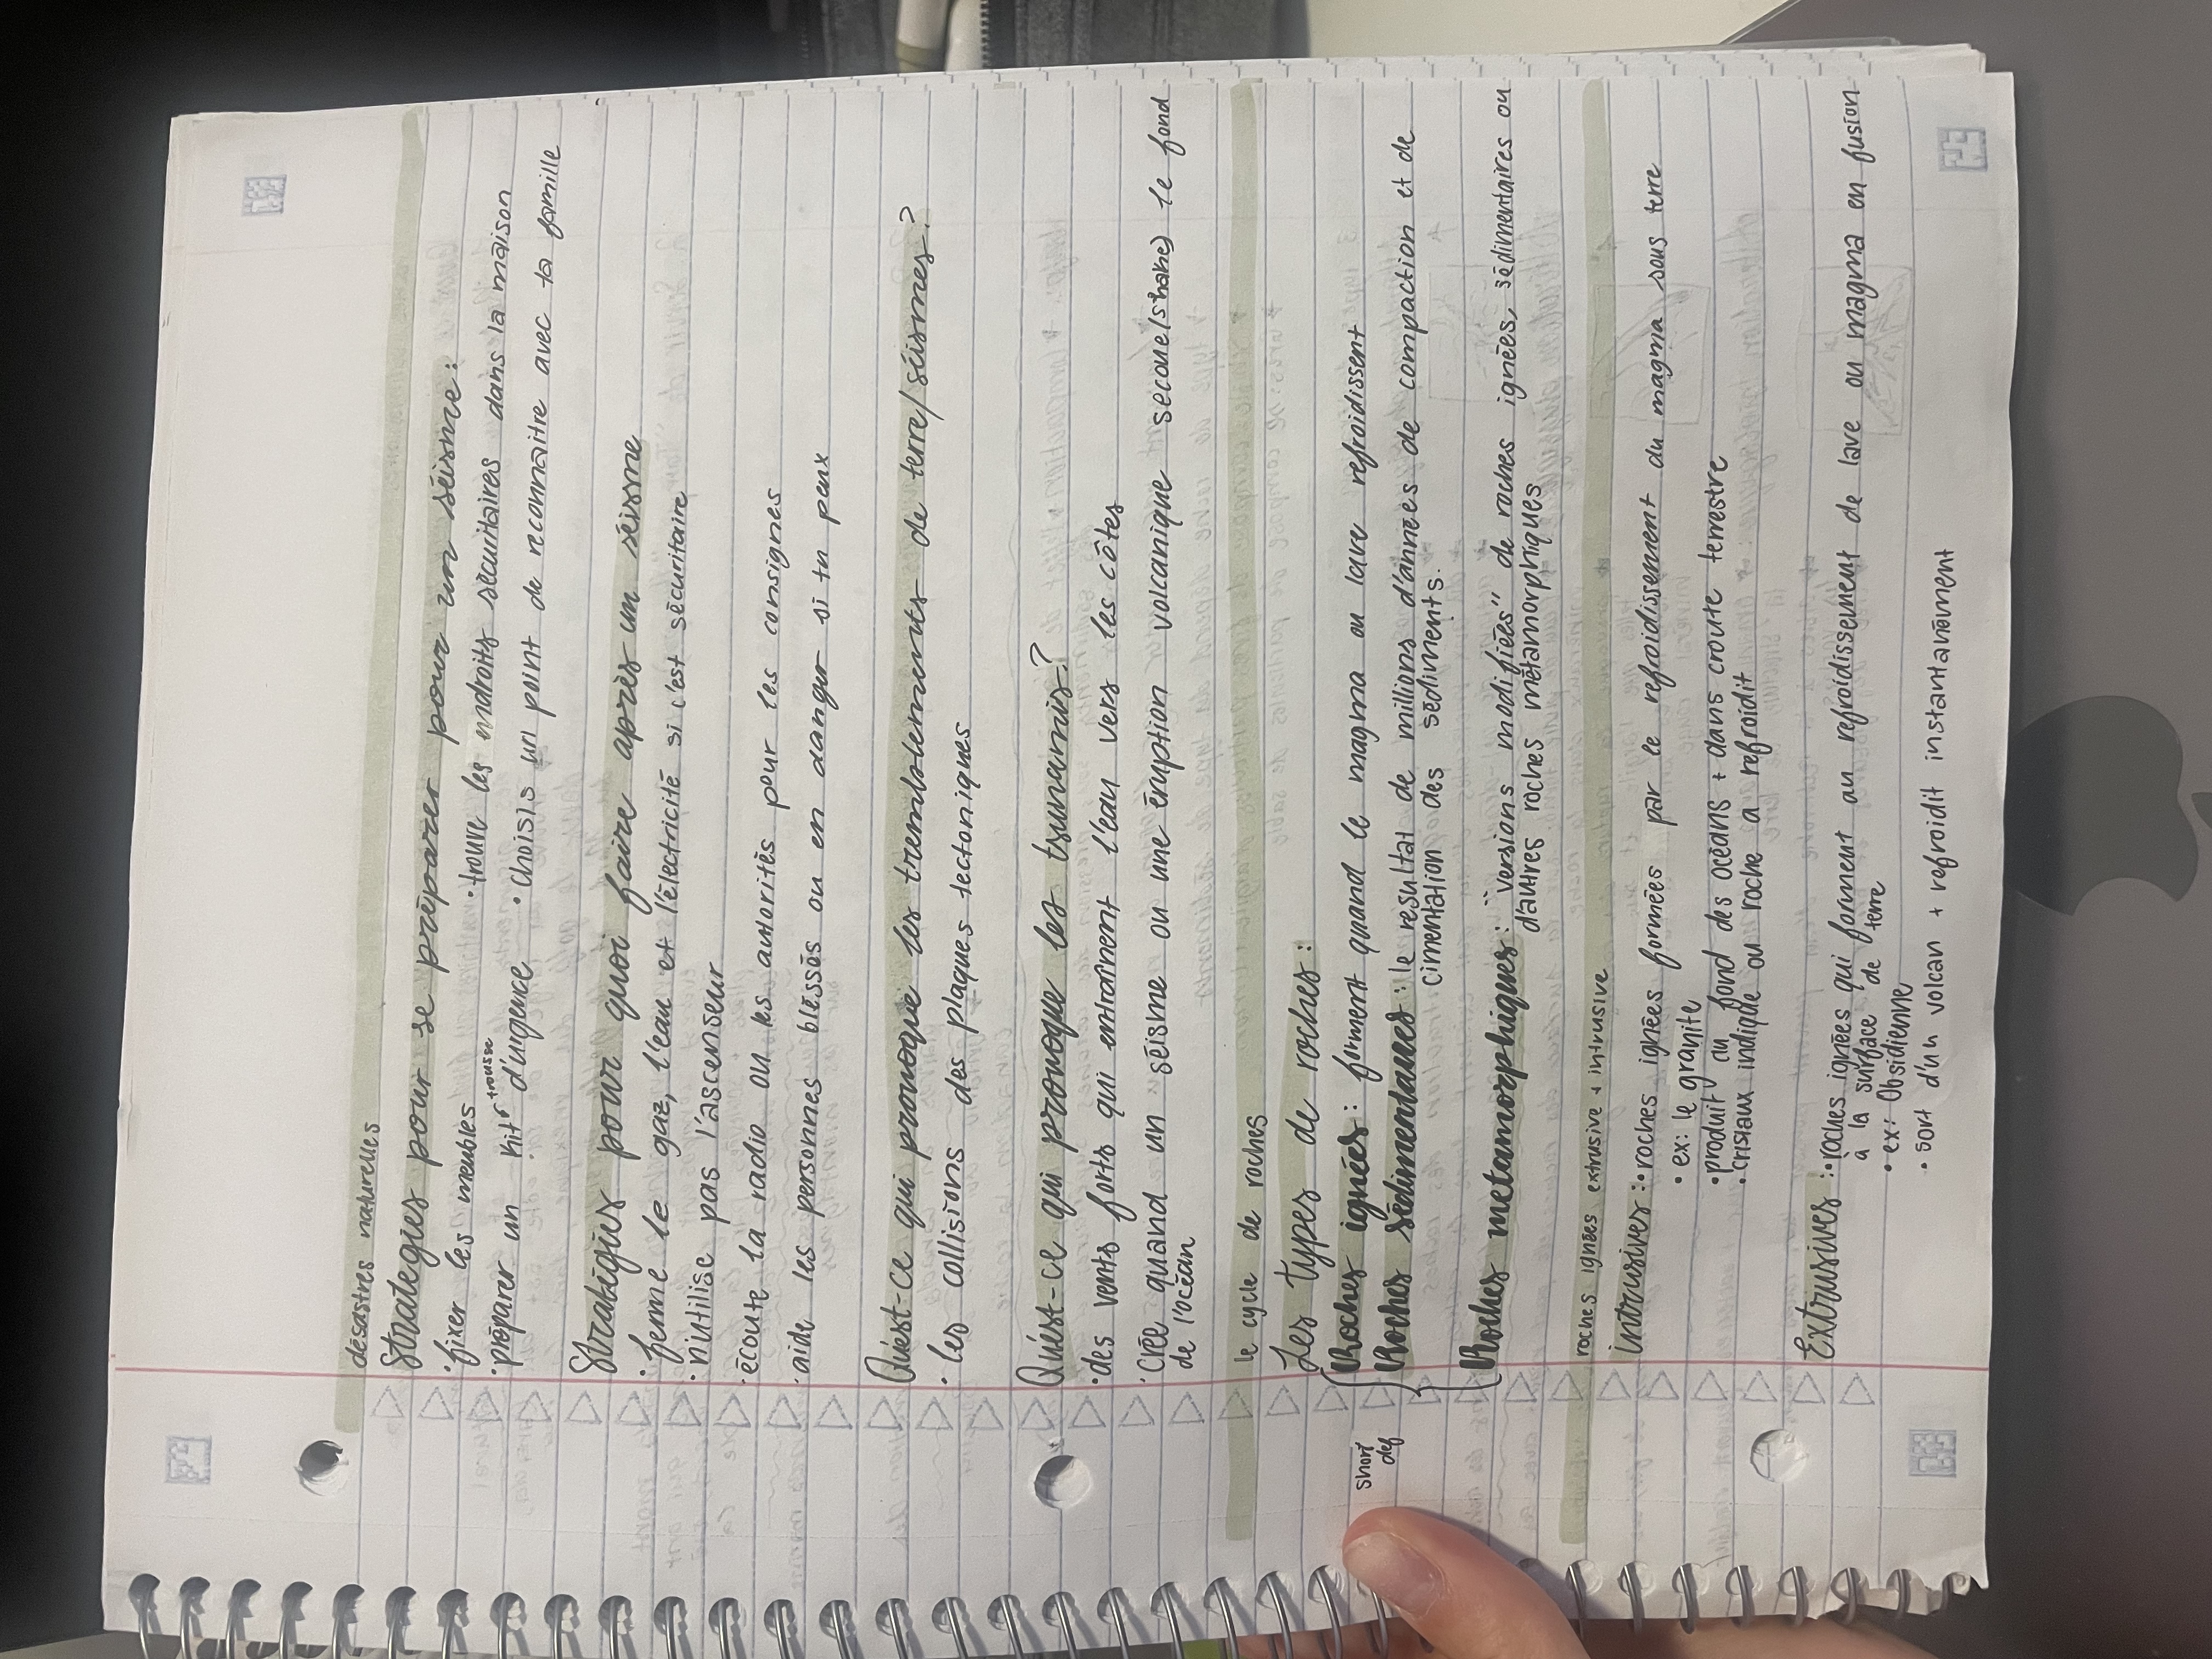 désastres naturelles
Stratégies pour se préparer pour un séisme:
· fixer les meubles · trouve les endroits sécuritaires dans la maison
· préparer un kit d'urgence · choisis un point de reconnaitre avec ta famille
trousse
Stratégies pour quoi faire après un séisme
· ferme le gaz, l'eau et l'électricité si c'est sécuritaire
· n'utilise pas l'ascenseur
· écoute la radio ou les autorités pour les consignes
· aide les personnes blessés ou en danger si tu peux
Qu'est-ce qui provoque les tremblements de terre/séismes?
· les collisions des plaques tectoniques
Qu'est-ce qui provoque les tsunamis?
· des vents forts qui entraînent l'eau vers les côtes
· Créé quand un séisme ou une éruption volcanique secoue(shake) le fond
de l'océan
le cycle de roches
Les types de roches:
short
def
Roches ignées: forment quand le magma ou lave refroidissent
Roches sédimentaires: le resultat de millions d'années de compaction et de
cimentation des sédiments.
Roches metamorphiques: "versions modifiées" de roches ignées, sédimentaires ou
d'autres roches métamorphiques
roches ignées extrusive + intrusive
Intrusives: · roches ignées formées par le refroidissement du magma sous terre
· ex: le granite
· produit au fond des océans + dans croute terrestre
· cristaux indique ou roche a refroidit
Extrusives: · roches ignées qui forment au refroidissement de lave ou magma en fusion
à la surface de terre
· ex: Obsidienne
· sort d'un volcan + refroidit instantanément